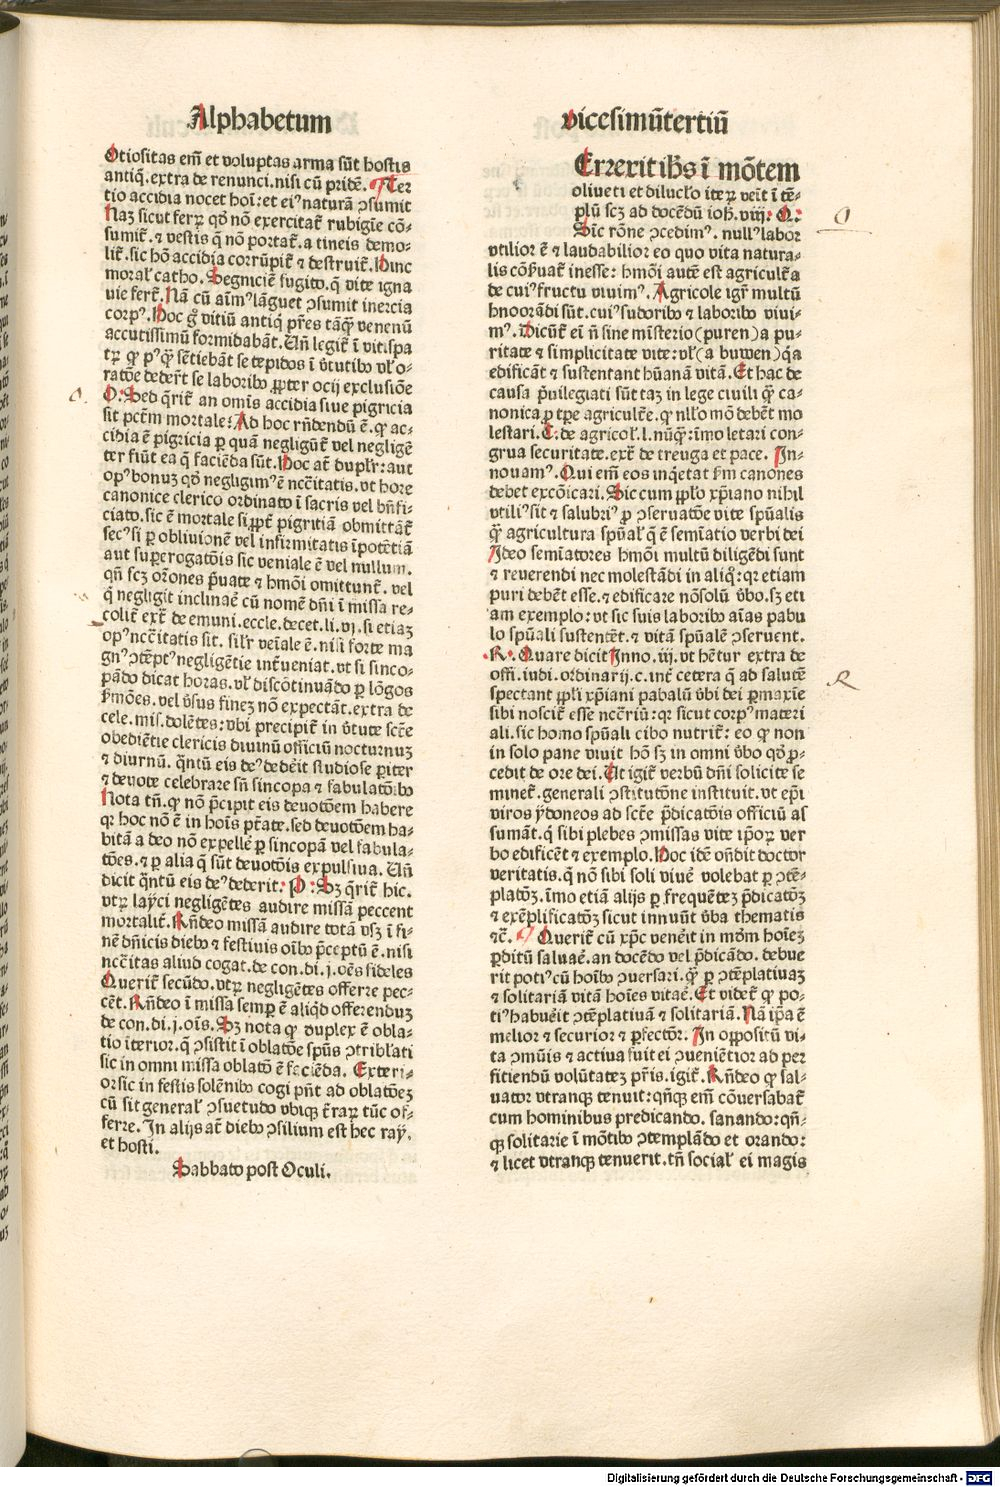 Alphabetum
Otiositas em̄ et voluptas arma sūt hostis
antiq̄. extra de renunci. nisi cū pridē. Ter
tio accidia nocet hoī: et eiꝰ naturā ↄsumit
Naꝫ sicut ferꝝ qđ nō exercitat᷑ rubigīe cō-
sumit᷑. ⁊ vestis q̄ nō portat᷑. a tineis demo-
lit᷑. sic hō accidia corrūpit᷑ ⁊ destruit᷑. Hinc
moral᷑ catho. Segniciē fugito. q̄ vite igna
vie fert᷑. Nā cū aīmꝰ lāguet ↄsumit inercia
corpꝰ. Hoc gͦ vitiū antiq̄ pr̄es tāq̄ꝫ venenū
accutissimū formidabāt. Un̄ legit᷑ ī vitispa
tꝝ ꝙ pꝰqꝫ sētiebāt se tepidos ī v̄tutibꝰ vl᷑ o-
ratōe dedert̄ se laboribꝰ ꝓpter ocij exclusiōe
O. Sed q̄rit᷑ an omīs accidia siue pigricia
sit pctm̄ mortale: Ad hoc rn̄dendū ē. ꝙ ac-
cidia ē pigricia ꝑ quā negligūt᷑ vel negligē
ter fiūt ea q̄ faciēda sūt. Hoc at̄ dupl̄r: aut
opꝰ bonuꝫ qđ negligimꝰ ē nccītatis. vt hore
canonice clerico ordinato ī sacris vel bn̄fi-
ciato. sic ē mortale si ꝓpt᷑ pigritiā obmittāt᷑
secꝰ si ꝑ obliuionē vel infirmitatis īpotētiā
aut suꝑerogatōis sic veniale ē vel nullum.
qn̄ scꝫ or̄ones p̄uate ⁊ hmōi omittunt᷑. vel
q̄ negligit inclinaē cū nomē dn̄i ī missa re-
colit᷑ ext᷑ de emuni. eccle. decet. li. vj. si etiaꝫ
opꝰ nccītatis sit. sil̄r veīale ē. nisi forte ma
gnꝰ ↄtēptꝰ negligētie int᷑ueniat. vt si sinco-
pādo dicat horas. vl᷑ discōtinuādo ꝑ lōgos
s̄mōes. vel v̄sus fineꝫ nō expectāt. extra de
cele. mis. dolētes: vbi precipit᷑ in v̄tute scte̅
obediētie clericis diuinū officiū nocturnuꝫ
⁊ diurnū. q̄ntū eis deꝰ dedēit studiose ꝑiter
⁊ deuote celebrare sn̄ sincopa ⁊ fabulatōibꝰ
Nota tn̄. ꝙ nō p̄cipit eis deuotōem habere
qꝛ hoc nō ē in hoīs pt̄ate. sed deuotōem ha-
bitā a deo nō expellē ꝑ sincopā vel fabula-
tōes. ⁊ ꝑ alia q̄ sūt deuotōis expulsiua. Un̄
dicit q̄ntū eis deꝰ dederit: P: Sꝫ q̄rit᷑ hic.
vtꝝ layci negligētes audire missā peccent
mortalit᷑. Rn̄deo missā audire totā vsqꝫ ī fi-
nē dn̄icis diebꝰ ⁊ festiuis oībꝰ p̄ceptū ē. nisi
nccītas aliud cogat. de con. di. j. oēs fideles
Querit᷑ secūdo. vtꝝ negligētes offerre pec-
cēt. Rn̄deo ī missa semꝑ ē aliqđ offerenduꝫ
de con. di. j. oīs. Sꝫ nota ꝙ duplex ē obla-
tio īterior. q̄ ↄsistit ī oblatōe spūs ↄtribl᷑ati
sic in omni missa oblatō ē faciēda. Exteri-
or sic in festis solēnibꝰ cogi pn̄t ad oblatōeꝫ
cū sit general᷑ ↄsuetudo vbiqꝫ t᷑raꝝ tūc of-
ferre. In alijs at̄ diebꝰ ↄsilium est hec ray.
et hosti.
Sabbato post Oculi.
vicesimūtertiū
Errexit ihs ī mōtem
oliueti et dilucl᷑o iteꝝ veīt ī tē-
plū scꝫ ad docēdū ioh̄. viij: O:
Sic rōne ↄcedimꝰ. nullꝰ labor
vtilior ē ⁊ laudabilior eo quo vita natura-
lis cōp̄uat᷑ inesse: hmōi autē est agricult᷑a
de cuiꝰ fructu viuimꝰ. Agricole igr̄ multū
hnoorādi sūt. cuiꝰ sudoribꝰ ⁊ laboribꝰ viui-
mꝰ. Dicūt᷑ ei̅ n̄ sine mīsterio (puren) a pu-
ritate ⁊ simplicitate vite: vl᷑ (a buwen) q̄a
edificāt ⁊ sustentant hūanā vitā. Et hac de
causa p̄uilegiati sūt taꝫ in lege ciuili qꝫ ca-
nonica ꝑ tꝑe agricult̄e. ꝙ nll᷑o mō debēt mo
lestari. C. de agricol᷑. l. nūqꝫ: īmo letari con-
grua securitate. ext᷑ de treuga et pace. In-
nouamꝰ. Qui em̄ eos inq̄etat s̄m canones
debet excōicari. Sic cum ꝓpl᷑o xp̄iano nihil
vtiliꝰ sit ⁊ salubriꝰ ꝓ ↄseruatōe vite spūalis
qꝫ agricultura spūal᷑ q̄ ē semīatio verbi dei
Ideo semīatores hmōi multū diligēdi sunt
⁊ reuerendi nec molestādi in aliqͦ: qꝛ etiam
puri debēt esse. ⁊ edificare nōsolū v̄bo. sꝫ eti
am exemplo: vt sic suis laboribꝰ aīas pabu
lo spūali sustentēt. ⁊ vitā spūalē ↄseruent.
R. Quare dicit Inno. iij. vt hētur extra de
offi. iudi. ordinarij. c. int᷑ cetera q̄ ad salutē
spectant ꝓpl᷑i xp̄iani pabulū v̄bi dei ꝑmaxīe
sibi noscit᷑ esse ncc̄riū: qꝛ sicut corpꝰ materi
ali. sic homo spūali cibo nutrit᷑: eo ꝙ non
in solo pane viuit hō sꝫ in omni v̄bo qđ ꝓ-
cedit de ore dei. Ut igit᷑ verbū dn̄i solicite se
minet᷑. generali ↄstitutōne instituit. vt epī
viros ydoneos ad scte̅ p̄dicatōis officiū as
sumāt. q̄ sibi plebes ↄmissas vite ip̄oꝝ ver
bo edificēt ⁊ exemplo. Hoc idē on̄dit doctor
veritatis. q̄ nō sibi soli viuē volebat ꝑ ↄtē-
platōꝫ. īmo etiā alijs ꝑ frequēteꝫ p̄dicatōꝫ
⁊ exēplificatōꝫ sicut innuūt v̄ba thematis
⁊c̄. Querit᷑ cū xp̄c venēit in mōm hoīeꝫ
ꝑditū saluaē. an docēdo vel p̄dicādo. debue
rit potiꝰ cū hoībꝰ ↄuersari. qꝫ ꝑ ↄtēplatiuaꝫ
⁊ solitariā vitā hoīes vitaē. Et videt᷑ ꝙ po-
tiꝰ habuēit ↄtēplatiuā ⁊ solitariā. Nā ip̄a ē
melior ⁊ securior ⁊ ꝑfectōr. In oꝓpositū vi-
ta ↄmūis ⁊ actiua fuit ei ↄueniētior ad per
fitiendū volūtateꝫ pr̄is. igit᷑. Rn̄deo ꝙ sal-
uator vtranqꝫ tenuit: qn̄qꝫ em̄ cōuersabat᷑
cum hominibus predicando. sanando: qn̄-
qꝫ solitarie ī mōtibꝰ ↄtemplādo et orando:
⁊ licet vtranqꝫ tenuerit. tn̄ social᷑ ei magis
O
O
R
Digitalisierung gefördert durch die Deutsche Forschungsgemeinschaft - DFG